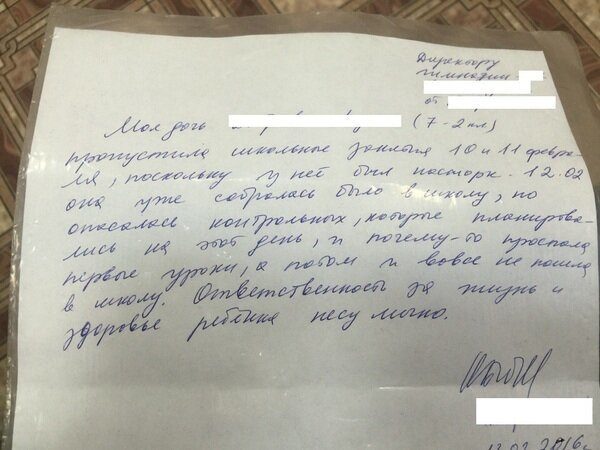 Директору
гимназии
от
Моя дочь (7-2 кл)
пропустила школьные занятия 10 и 11 февра-
ля, поскольку у неё был насморк. 12.02
она уже собралась было в школу, но
опасалась контрольных, которые планирова-
лись на этот день, и почему-то проспала
первые уроки, а потом и вовсе не пошла
в школу. Ответственность за жизнь и
здоровье ребёнка несу лично.